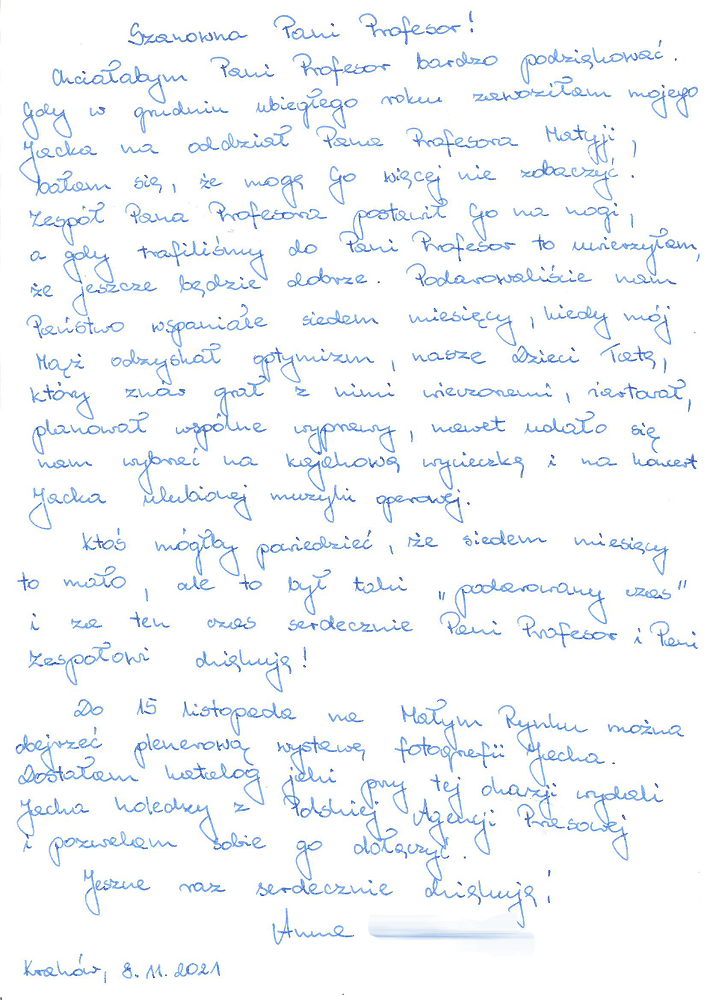 Szanowna Pani Profesor!
Chciałabym Pani Profesor bardzo podziękować.
Gdy w grudniu ubiegłego roku zawoziłam mojego
Jacka na oddział Pana Profesora Matyji,
bałam się, że mogę Go więcej nie zobaczyć.
Zespół Pana Profesora postawił Go na nogi,
a gdy trafiliśmy do Pani Profesor to uwierzyłam,
że jeszcze będzie dobrze. Podarowaliście nam
Państwo wspaniałe siedem miesięcy, kiedy mój
Mąż odzyskał optymizm, nasze Dzieci Tatę,
który znów grał z nimi wieczorami, żartował,
planował wspólne wyprawy, nawet udało się
nam wybrać na kajakową wycieczkę i na koncert
Jacka ulubionej muzyki operowej.
Ktoś mógłby powiedzieć, że siedem miesięcy
to mało, ale to był taki „podarowany czas"
i za ten czas serdecznie Pani Profesor i Pani
Zespołowi dziękuję!
Do 15 listopada na Małym Rynku można
obejrzeć plenerową wystawę fotografii Jacka.
Dostałam katalog jaki przy tej okazji wydali
Jacka koledzy z Polskiej Agencji Prasowej
i pozwalam sobie go dołączyć.
Jeszcze raz serdecznie dziękuję!
Anna
Kraków, 8.11.2021